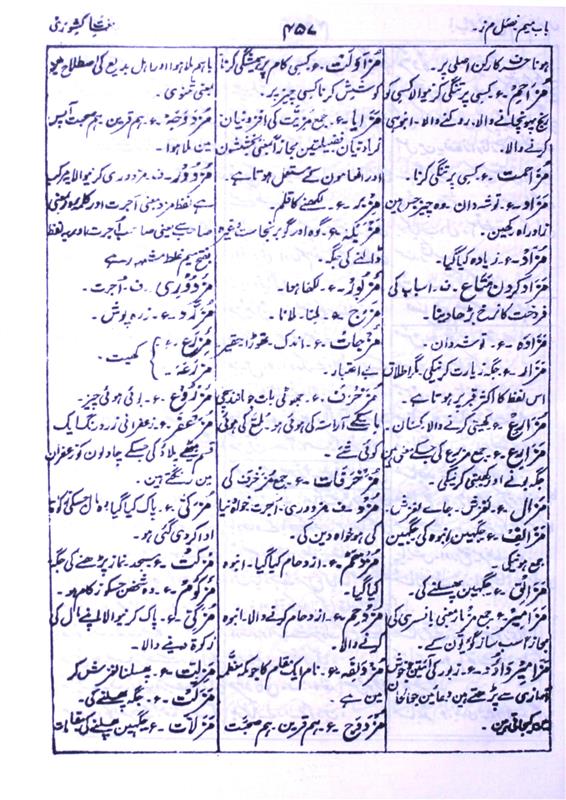 باب میم فصل مع ز۔
۴۵۷
لغات کشوری
ہونا حرف کا رکن اصلی پر۔
مُزَاحِمْ۔ ع۔ کسی پر تنگی کرنیوالا کسی کو
رنج پہونچانے والا۔ روکنے والا۔ انبوہی
کرنے والا۔
مُزَاحَمَت۔ ع۔ کسی پر تنگی کرنا۔
مَزَاد۔ ع۔ توشہ دان۔ وہ چیز جس مین
زاد راہ رکھین۔
مُزَادْ۔ ع۔ زیادہ کیا گیا۔
مَزَاد کردنِ مَتَاع۔ ف۔ اسباب کی
فروخت کا نرخ بڑھا دینا۔
مَزَادَہ۔ ع۔ توشہ دان۔
مَزَار۔ ع۔ جگہ زیارت کرنیکی۔ مگر اطلاق
اس لفظ کا اکثر قبر پر ہوتا ہے۔
مُزَارِعْ۔ ع۔ کھیتی کرنے والا۔ کسان۔
مَزَارِع۔ ع۔ جمع مزرع کی جسکے معنی ہین
جگہ بونے اور کھیتی کرنیکی۔
مَزَال۔ ع۔ لغزش۔ جاے لغزش۔
مَزَالِف۔ ع۔ جگہین انبوہ کی جگہین
جمع ہونیکی۔
مَزَالِق۔ ع۔ جگہین پھسلنے کی۔
مَزَامِیر۔ ع۔ جمع مزمار بمعنی بانسری کی
مجازاً سب ساز گویّون کے۔
مَزَامِیرِ دَاؤد۔ زبور کی آیتین جو خوش
آوازی سے پڑھتے ہین دعائین جو
گائی جاتی ہین۔
مُزَاوَلَت۔ ع۔ کسی کام پر ہمیشگی کرنا
کوشش کرنا کسی چیز پر۔
مَزَایَا۔ ع۔ جمع مزیّت کی افزونیان
زیادتیان فضیلتین مجازاً بمعنی بخششون
اور انعامون کے مستعمل ہوتا ہے۔
مِزْبَر۔ ع۔ لکھنے کا قلم۔
مَزْبَلَہ۔ ع۔ گوہ اور گوبر نجاست وغیرہ
ڈالنے کی جگہ۔
مَزْبُور۔ ع۔ لکھا ہوا۔
مَزْج۔ ع۔ ملنا۔ ملانا۔
مُزْجَات۔ ع۔ اندک۔ تھوڑا۔ حقیر۔
بے اعتبار۔
مُزَخْرَف۔ ع۔ جھوٹی بات جو مانند سچ
بات کے آراستہ کی ہوئی ہو۔ ملمّع کی ہوئی
کوئی شے۔
مُزَخْرَفَات۔ ع۔ جمع مزخرف کی
مُزْد۔ ف۔ مزدوری۔ اجرت خواہ دنیا
کی ہو خواہ دین کی۔
مُزْدَحَمْ۔ ع۔ ازدحام کیا گیا۔ انبوہ
کیا گیا۔
مُزْدَحِم۔ ع۔ ازدحام کرنے والا۔ انبوہ
کرنے والا۔
مُزْدَلِفَہ۔ ع۔ نام ایک مقام کا جو مکہ معظمہ
مین ہے
مُزْدَوَج۔ ع۔ ہم قرین۔ ہم صحبت
باہم ملا ہوا اور اہل بدیع کی اصطلاح مین
بمعنی مثنوی۔
مُزْدَوَجَہ۔ ع۔ ہم قرین ہم صحبت آپس
مین ملا ہوا۔
مُزْدُور۔ ف۔ مزدوری کرنیوالا یہ مرکب
ہے لفظ مزد بمعنی اجرت اور کلمہ ور بمعنی
صاحب سے یعنی صاحب اجرت اور یہ لفظ
بفتح میم غلط مشہور ہے
مُزْدُوری۔ ف۔ اجرت۔
مُزَرَّد۔ ع۔ زرہ پوش۔
مَزْرَع۔ ع۔ } کھیت۔
مَزْرَعَہ۔ ع۔
مَزْرُوع۔ ع۔ بوئی ہوئی چیز۔
مُزَعْفَر۔ ع۔ زعفرانی زرد رنگ ایک
قسم میٹھے پلاؤ کی جسکے چاولون کو زعفران
مین رنگتے ہین۔
مُزَکّٰی۔ ع۔ پاک کیا گیا وہ مال جسکی زکوٰۃ
ادا کر دی گئی ہو۔
مَزْکَت۔ ع۔ مسجد۔ نماز پڑھنے کی جگہ
مَزْکُوم۔ ع۔ وہ شخص جسکو زکام ہو۔
مُزَکِّی۔ ع۔ پاک کرنیوالا اپنے مال کی
زکوٰۃ دینے والا۔
مَزِلَّت۔ ع۔ پھسلنا لغزش کرنا
مَزَلَّت۔ ع۔ جگہ پھسلنے کی۔
مَزَلَّات۔ ع۔ جگہین پھسلنے کی۔ مقامات